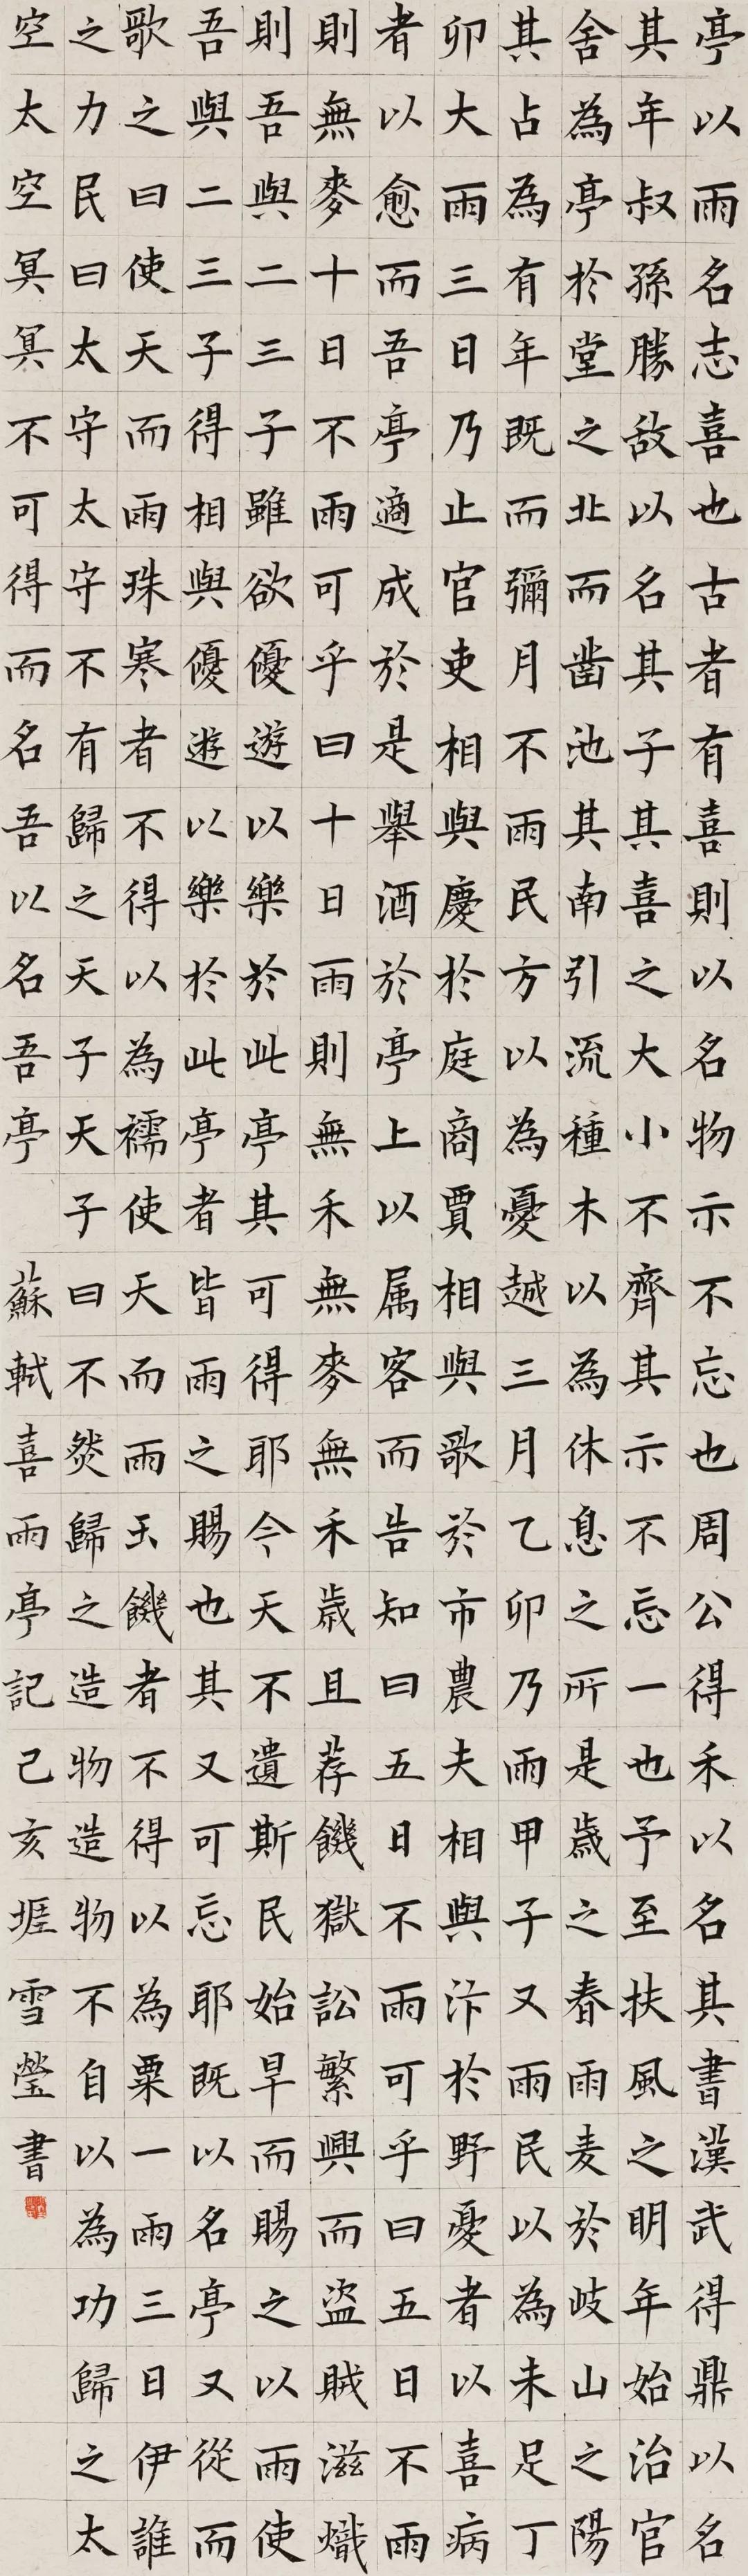 亭以雨名志喜也古者有喜則以名物示不忘也周公得禾以名其書漢武得鼎以名
其年叔孫勝敌以名其子其喜之大小不齊其示不忘一也予至扶風之明年始治官
舍為亭於堂之北而凿池其南引流種木以為休息之所是歲之春雨麦於岐山之陽
其占為有年既而彌月不雨民方以為憂越三月乙卯乃雨甲子又雨民以為未足丁
卯大雨三日乃止官吏相與慶於庭商賈相與歌於市農夫相與汴於野憂者以喜病
者以愈而吾亭適成於是舉酒於亭上以属客而告知曰五日不雨可乎曰五日不雨
則無麥十日不雨可乎曰十日雨則無禾無麥無禾歲且荐饑獄訟繁興而盜賊滋熾
則吾與二三子雖欲優遊以樂於此亭其可得耶今天不遺斯民始旱而賜之以雨使
吾與二三子得相與優遊以樂於此亭者皆雨之賜也其又可忘耶既以名亭又從而
歌之曰使天而雨珠寒者不得以為襦使天而雨玉饑者不得以為粟一雨三日伊誰
之力民曰太守太守不有歸之天子天子曰不然歸之造物造物不自以為功歸之太
空太空冥冥不可得而名吾以名吾亭 蘇軾喜雨亭記己亥堐雪瑩書